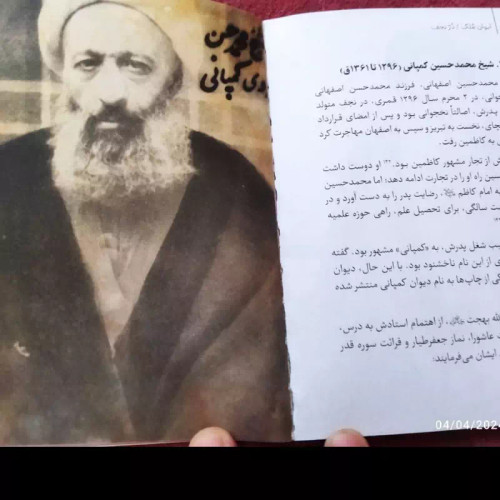 شیخ محمد حسین
کمپانی
ایوان ملک / دار نجف
شیخ محمدحسین کمپانی (۱۲۹۶ تا ۱۳۶۱ق)
محمدحسین اصفهانی، فرزند محمدحسن اصفهانی
در ۲ محرم سال ۱۲۹۶ قمری، در نجف متولد
پدرش، اصالتاً نخجوانی بود و پس از امضای قرارداد
نخست به تبریز و سپس به اصفهان مهاجرت کرد
به کاظمین رفت.
از تجار مشهور کاظمین بود. او دوست داشت
راه او را در تجارت ادامه دهد؛ اما محمدحسین
به امام کاظم علیه‌السلام، رضایت پدر را به دست آورد و در
سالگی، برای تحصیل علم، راهی حوزه علمیه
شغل پدرش، به «کمپانی» مشهور بود. گفته
از این نام ناخشنود بود. با این حال، دیوان
از چاپ‌ها به نام دیوان کمپانی منتشر شده
بهجت، از اهتمام استادش به درس،
عاشورا، نماز جعفرطیار و قرائت سوره قدر
ایشان می‌فرمایند:
04/04/202